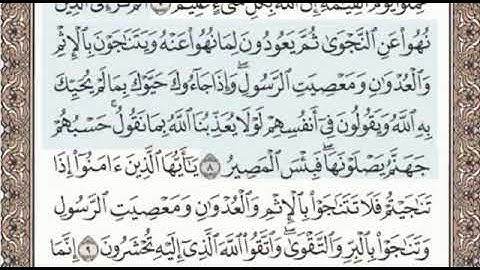 عَمِلُوا۟ يَوْمَ ٱلْقِيَٰمَةِ إِنَّ ٱللَّهَ بِكُلِّ شَىْءٍ عَلِيمٌ ۝٧ أَلَمْ تَرَ إِلَى ٱلَّذِينَ
نُهُوا۟ عَنِ ٱلنَّجْوَىٰ ثُمَّ يَعُودُونَ لِمَا نُهُوا۟ عَنْهُ وَيَتَنَٰجَوْنَ بِٱلْإِثْمِ
وَٱلْعُدْوَٰنِ وَمَعْصِيَتِ ٱلرَّسُولِ ۖ وَإِذَا جَآءُوكَ حَيَّوْكَ بِمَا لَمْ يُحَيِّكَ
بِهِ ٱللَّهُ وَيَقُولُونَ فِىٓ أَنفُسِهِمْ لَوْلَا يُعَذِّبُنَا ٱللَّهُ بِمَا نَقُولُ ۚ حَسْبُهُمْ
جَهَنَّمُ يَصْلَوْنَهَا ۖ فَبِئْسَ ٱلْمَصِيرُ ۝٨ يَٰٓأَيُّهَا ٱلَّذِينَ ءَامَنُوٓا۟ إِذَا
تَنَٰجَيْتُمْ فَلَا تَتَنَٰجَوْا۟ بِٱلْإِثْمِ وَٱلْعُدْوَٰنِ وَمَعْصِيَتِ ٱلرَّسُولِ
وَتَنَٰجَوْا۟ بِٱلْبِرِّ وَٱلتَّقْوَىٰ ۖ وَٱتَّقُوا۟ ٱللَّهَ ٱلَّذِىٓ إِلَيْهِ تُحْشَرُونَ ۝٩ إِنَّمَا